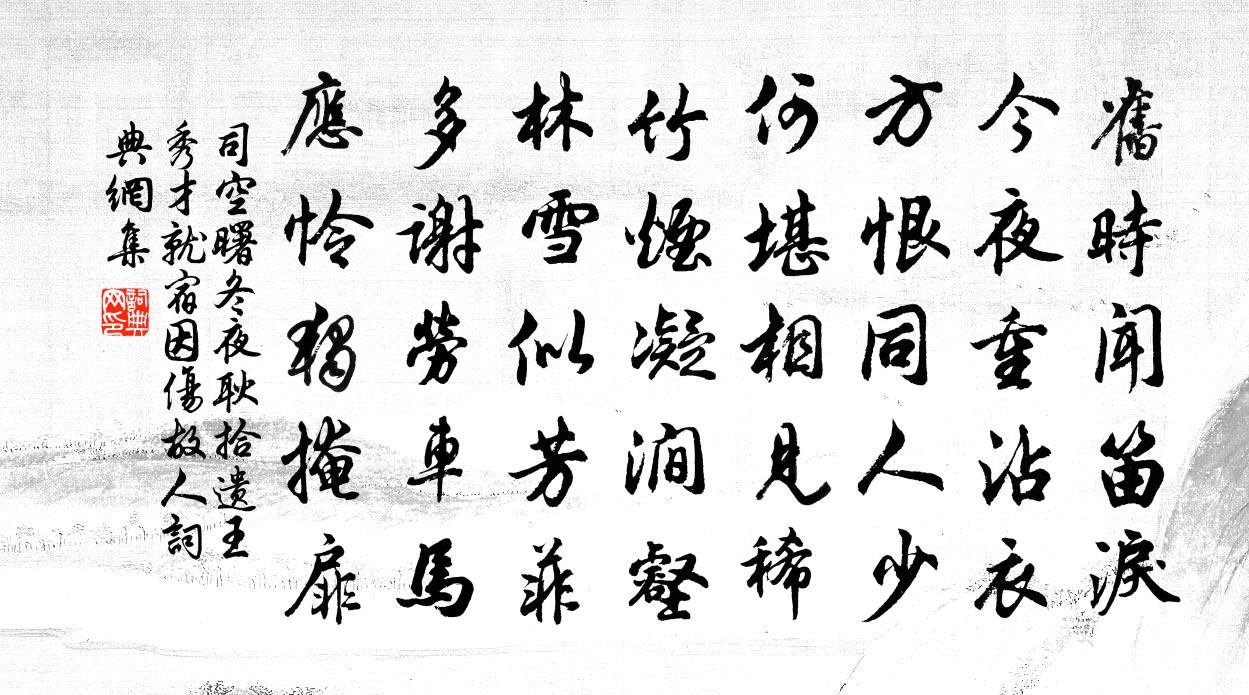 舊時聞笛淚
今夜重沾衣
方恨同人少
何堪相見稀
竹煙凝澗壑
林雪似芳菲
多謝勞車馬
應憐獨掩扉
司空曙冬夜耿拾遺王
秀才就宿因傷故人詞
典網集
詞典
网印